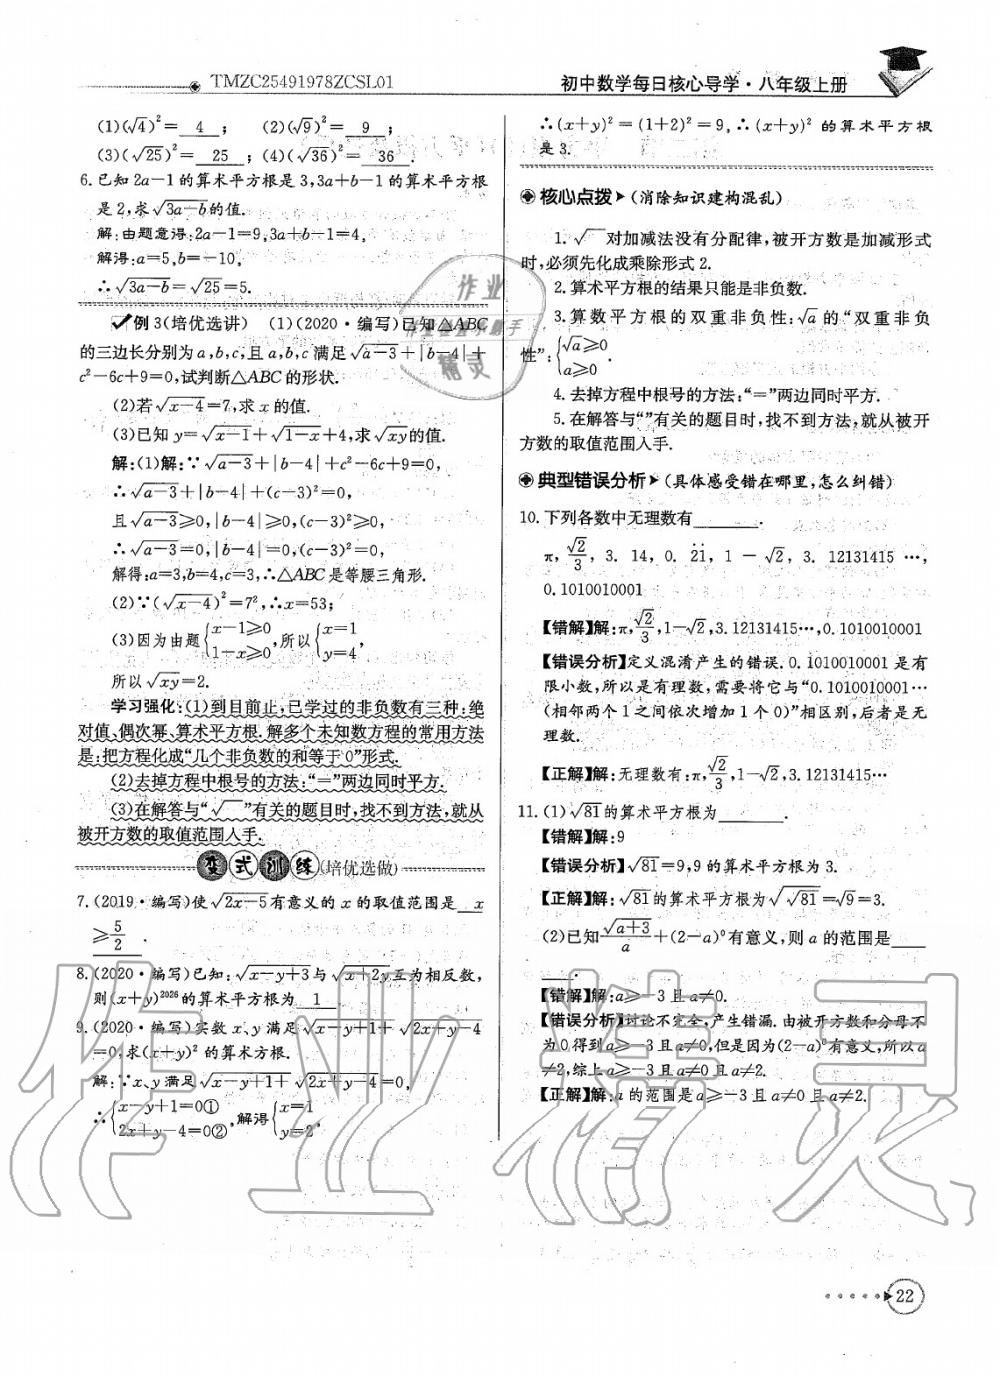 TMZC25491978ZCSL01
初中数学每日核心导学·八年级上册
(1)(√4)²= 4 ; (2)(√9)²= 9 ;
(3)(√25)²= 25 ; (4)(√36)²= 36 .
6.已知2a-1的算术平方根是3,3a+b-1的算术平方根
是2,求√3a-b的值.
解:由题意得:2a-1=9,3a+b-1=4,
解得:a=5,b=-10,
∴√3a-b=√25=5.
例3(培优选讲) (1)(2020·编写)已知△ABC
的三边长分别为a,b,c,且a,b,c满足√a-3+|b-4|+
c²-6c+9=0,试判断△ABC的形状.
(2)若√x-4=7,求x的值.
(3)已知y=√x-1+√1-x+4,求√xy的值.
解:(1)解:∵√a-3+|b-4|+c²-6c+9=0,
∴√a-3+|b-4|+(c-3)²=0,
且√a-3≥0,|b-4|≥0,(c-3)²≥0,
∴√a-3=0,|b-4|=0,(c-3)²=0,
解得:a=3,b=4,c=3,∴△ABC是等腰三角形.
(2)∵(√x-4)²=7²,∴x=53;
(3)因为由题{x-1≥0 1-x≥0,所以{x=1 y=4,
所以√xy=2.
学习强化:(1)到目前止,已学过的非负数有三种:绝
对值、偶次幂、算术平方根.解多个未知数方程的常用方法
是:把方程化成“几个非负数的和等于0”形式.
(2)去掉方程中根号的方法:“=”两边同时平方.
(3)在解答与“√”有关的题目时,找不到方法,就从
被开方数的取值范围入手.
变式训练(培优选做)
7.(2019·编写)使√2x-5有意义的x的取值范围是 x
≥5/2 .
8.(2020·编写)已知:√x-y+3与√x+2y互为相反数,
则(x+y)²⁰²⁶的算术平方根为 1 .
9.(2020·编写)实数x、y满足√x-y+1+√2x+y-4
=0,求(x+y)²的算术平方根.
解:∵x、y满足√x-y+1+√2x+y-4=0,
∴{x-y+1=0① 2x+y-4=0②,解得{x=1 y=2,
∴(x+y)²=(1+2)²=9,∴(x+y)²的算术平方根
是3.
核心点拨 (消除知识建构混乱)
1.√对加减法没有分配律,被开方数是加减形式
时,必须先化成乘除形式2.
2.算术平方根的结果只能是非负数.
3.算数平方根的双重非负性:√a的“双重非负
性”:{√a≥0 a≥0.
4.去掉方程中根号的方法:“=”两边同时平方.
5.在解答与“”有关的题目时,找不到方法,就从被开
方数的取值范围入手.
典型错误分析 (具体感受错在哪里,怎么纠错)
10.下列各数中无理数有______.
π,√2/3,3.14,0.2̇1̇,1-√2,3.12131415…,
0.1010010001
【错解】解:π,√2/3,1-√2,3.12131415…,0.1010010001
【错误分析】定义混淆产生的错误.0.1010010001是有
限小数,所以是有理数,需要将它与“0.1010010001…
(相邻两个1之间依次增加1个0)”相区别,后者是无
理数.
【正解】解:无理数有:π,√2/3,1-√2,3.12131415…
11.(1)√81的算术平方根为______.
【错解】解:9
【错误分析】√81=9,9的算术平方根为3.
【正解】解:√81的算术平方根为√√81=√9=3.
(2)已知√a+3/a+(2-a)⁰有意义,则a的范围是___
___.
【错解】解:a≥-3且a≠0.
【错误分析】讨论不完全,产生错漏.由被开方数和分母不
为0得到a≥-3且a≠0,但是因为(2-a)⁰有意义,所以a
≠2,综上a≥-3且a≠0且a≠2.
【正解】解:a的范围是a≥-3且a≠0且a≠2.
22
作业精灵